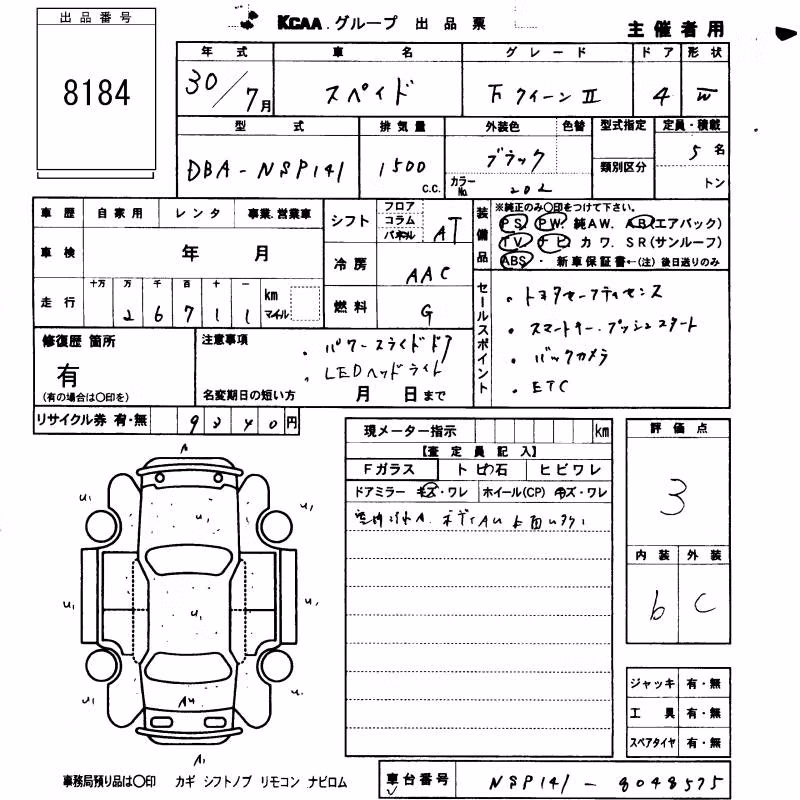 出品番号
8184
KCAA グループ 出品票
主催者用
年式 車名 グレード ドア 形状
30/7月 スペイド F クイーン II 4 W
型式 排気量 外装色 色替 型式指定 定員・積載
DBA-NSP141 1500 C.C. ブラック 5名
カラーNo. 202 類別区分 トン
車歴 自家用 レンタ 事業.営業車 シフト フロア コラム パネル AT
車検 年 月 冷房 AAC
走行 十万 万 千 百 十 一 km マイル
2 6 7 1 1
燃料 G
装備品 ※純正のみ○印をつけて下さい。
PS PW. 純AW. AB(エアバック)
TV ナビ カワ. SR(サンルーフ)
ABS・ 新車保証書←(注) 後日送りのみ
セールスポイント
・トヨタセーフティセンス
・スマートキー・プッシュスタート
・バックカメラ
・ETC
修復歴 箇所
有
(有の場合は○印を)
注意事項
・パワースライドドア
・LEDヘッドライト
名変期日の短い方 月 日まで
リサイクル券 有・無 9240円
現メーター指示 km
【査定員記入】
Fガラス トビ石 ヒビワレ
ドアミラー キズ・ワレ ホイール(CP) キズ・ワレ
評価点
3
内装 外装
b C
A
U1 U1
U1
U1 U1 U1
U1 AU U1
A1
ジャッキ 有・無
工具 有・無
スペアタイヤ 有・無
事務局預り品は○印 カギ シフトノブ リモコン ナビロム
車台番号 NSP141-8048575